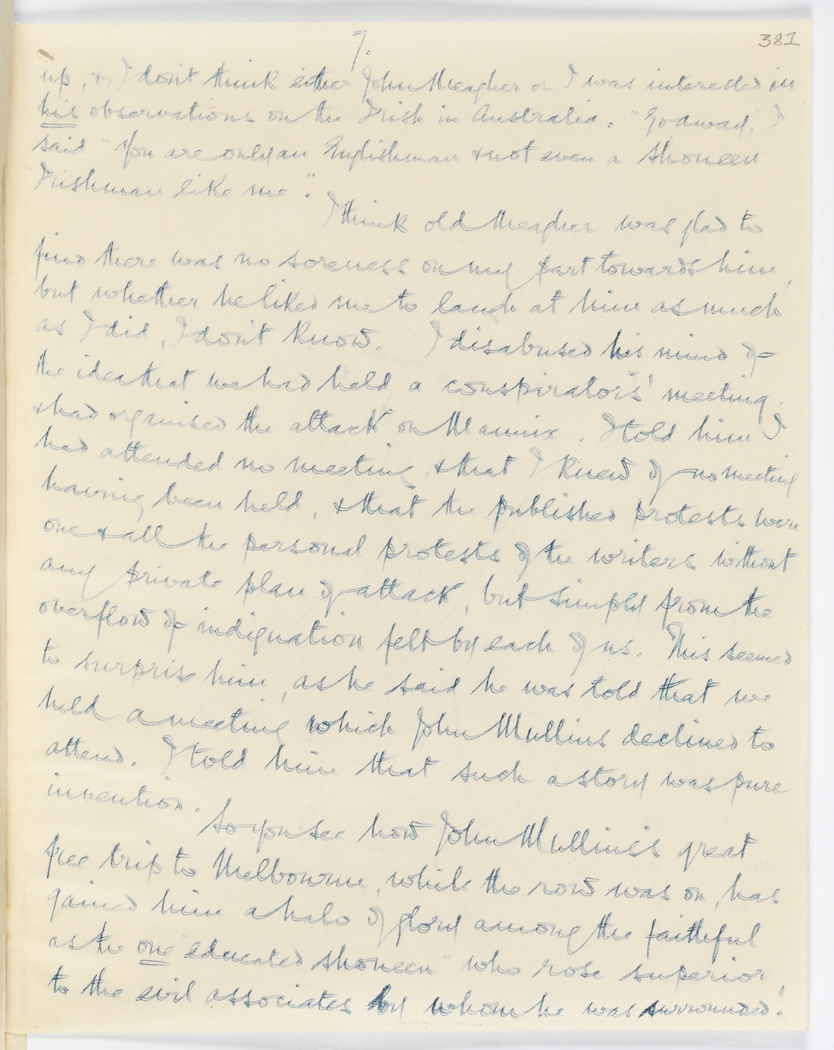 7.
381
up, & I don't think either John Meagher or I was interested in
his observations on the Irish in Australia. "Go away, I
said "You are only an Englishman & not even a shoneen
Irishman like me".
I think old Meagher was glad to
find there was no soreness on my part towards him,
but whether he liked me to laugh at him as much
as I did, I don't know. I disabused his mind of
the idea that we had held a conspirators' meeting,
& had organised the attack on Mannix. I told him I
had attended no meeting, & that I knew of no meeting
having been held, & that the published protests were
one & all the personal protests of the writers without
any private plan of attack, but simply from the
overflow of indignation felt by each of us. This seemed
to surprise him, as he said he was told that we
held a meeting which John Mullins declined to
attend. I told him that such a story was pure
invention.
So you see how John Mullins's great
free trip to Melbourne, while the row was on, has
gained him a halo of glory among the faithful
as the one "educated shoneen" who rose superior
to the evil associates by whom he was surrounded!